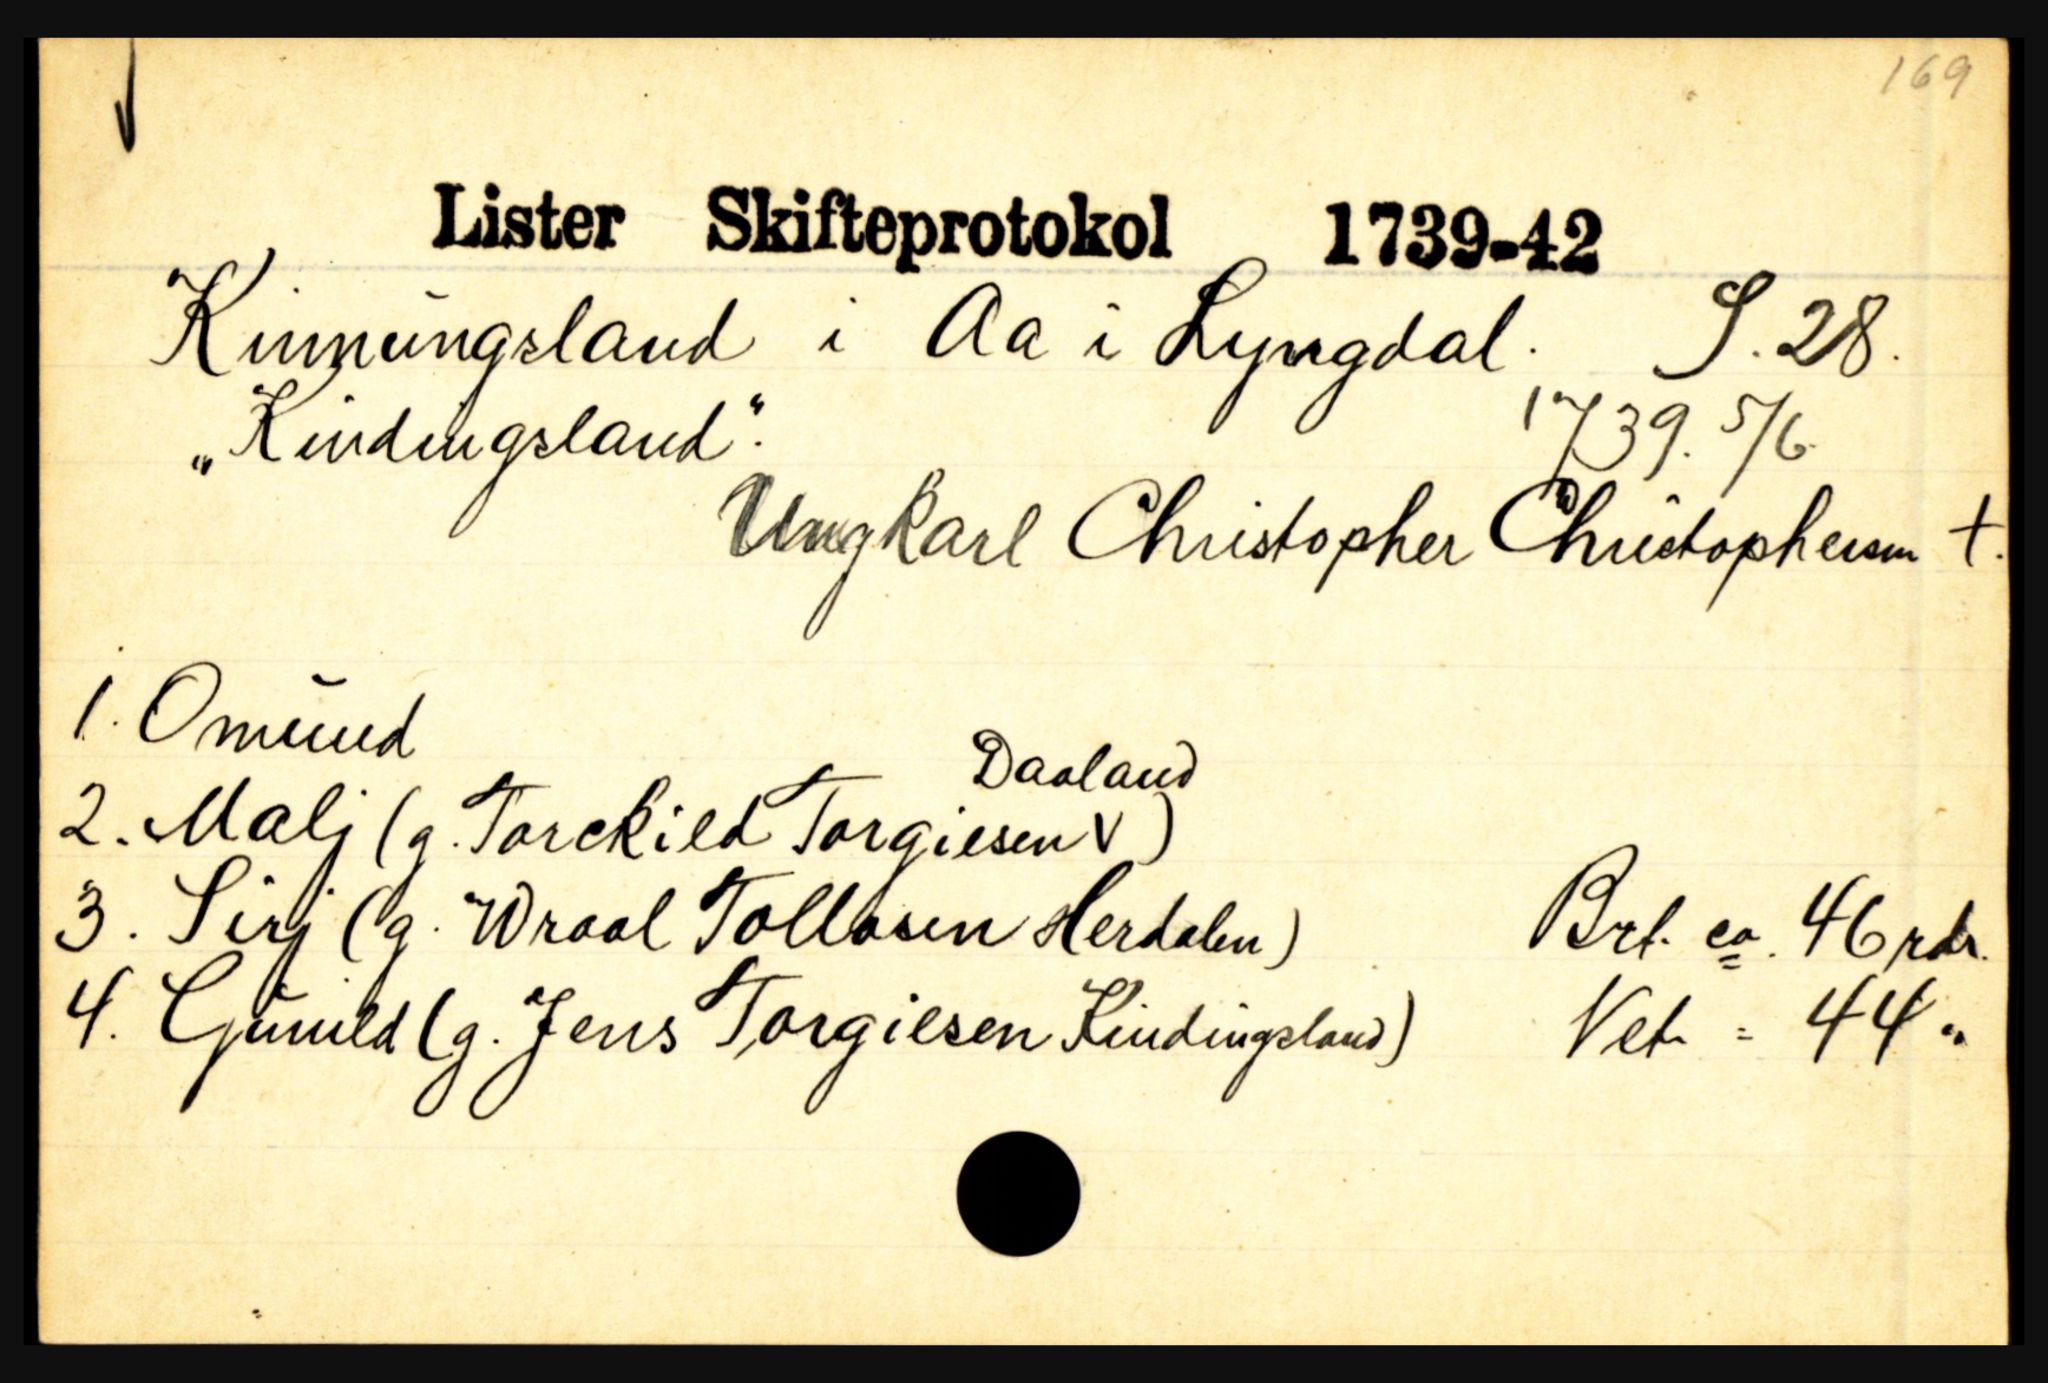 169
Lister Skifteprotokol 1739-42
Kinnungsland i Aa i Lyngdal. S. 28.
„Kindingsland“. 1739. 5/6.
Ungkarl Christopher Christophersen †.
1. Omund
Daaland
2. Malj (g. Torckild Torgiesen V)
3. Sirj (g. Wraal Tollasen Herdalen) Brt. ca. 46 rdr.
4. Gunild (g. Jens Torgiesen Kindingsland) Net. = 44 "